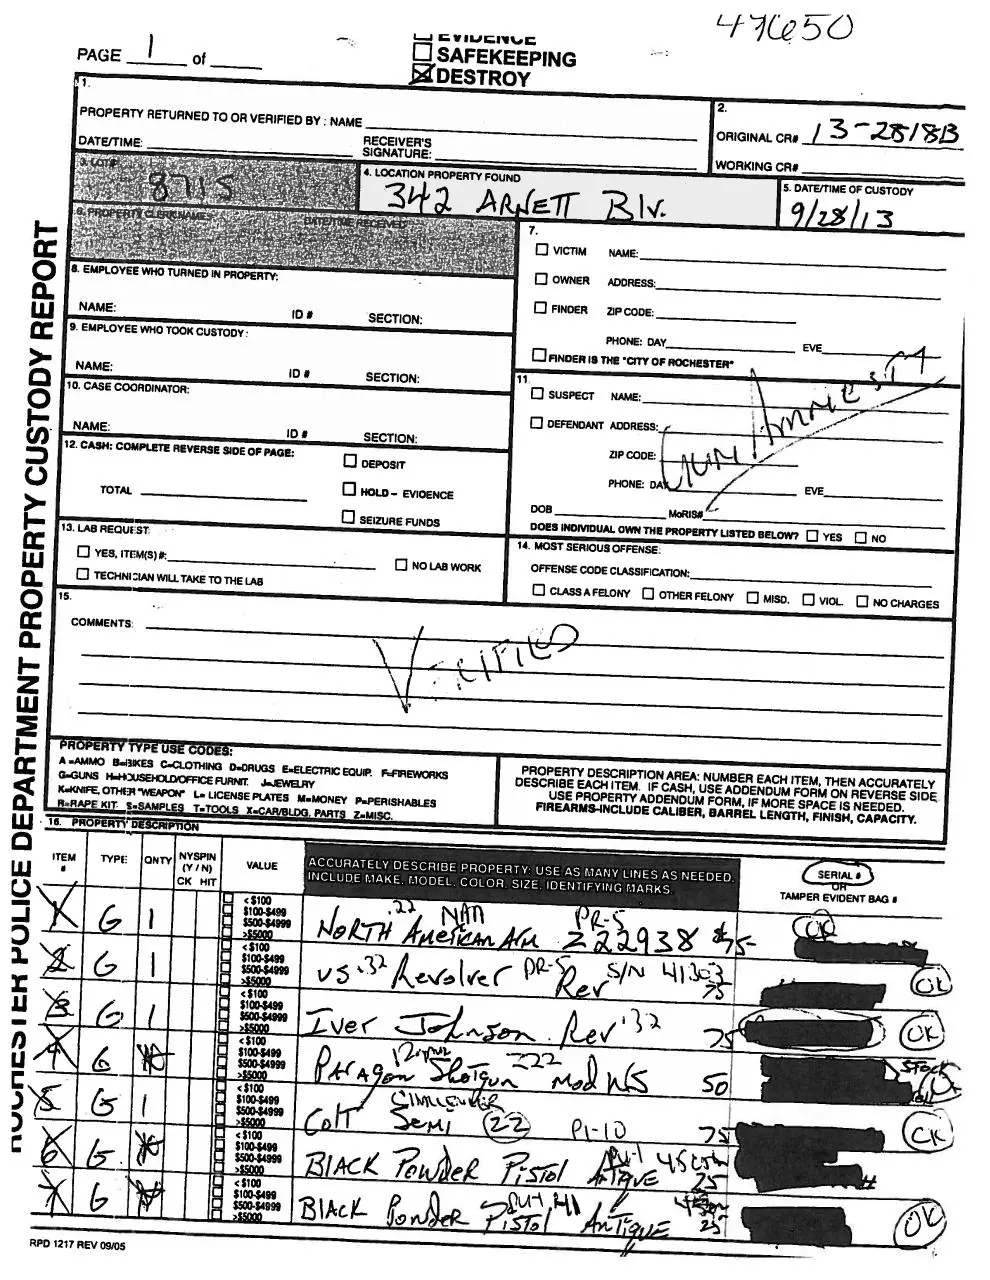 47650
PAGE 1 of
EVIDENCE
SAFEKEEPING
DESTROY
1.
PROPERTY RETURNED TO OR VERIFIED BY : NAME
DATE/TIME:
RECEIVER'S
SIGNATURE:
2.
ORIGINAL CR# 13-281813
WORKING CR#
3. LOT#
8715
4. LOCATION PROPERTY FOUND
342 ARNETT Blv.
5. DATE/TIME OF CUSTODY
9/28/13
6. PROPERTY CLERK NAME: DATE/TIME RECEIVED
7.
VICTIM NAME:
OWNER ADDRESS:
FINDER ZIP CODE:
PHONE: DAY EVE
FINDER IS THE "CITY OF ROCHESTER"
8. EMPLOYEE WHO TURNED IN PROPERTY:
NAME: ID # SECTION:
9. EMPLOYEE WHO TOOK CUSTODY :
NAME: ID # SECTION:
10. CASE COORDINATOR:
NAME: ID # SECTION:
11.
SUSPECT NAME:
DEFENDANT ADDRESS:
ZIP CODE:
PHONE: DAY EVE
DOB MoRIS#
DOES INDIVIDUAL OWN THE PROPERTY LISTED BELOW? YES NO
GUN AMNESTY
12. CASH: COMPLETE REVERSE SIDE OF PAGE:
DEPOSIT
TOTAL
HOLD – EVIDENCE
SEIZURE FUNDS
13. LAB REQUEST:
YES, ITEM(S) #:
NO LAB WORK
TECHNICIAN WILL TAKE TO THE LAB
14. MOST SERIOUS OFFENSE:
OFFENSE CODE CLASSIFICATION:
CLASS A FELONY OTHER FELONY MISD. VIOL. NO CHARGES
15.
COMMENTS:
VERIFIED
PROPERTY TYPE USE CODES:
A=AMMO B=BIKES C=CLOTHING D=DRUGS E=ELECTRIC EQUIP. F=FIREWORKS
G=GUNS H=HOUSEHOLD/OFFICE FURNIT. J=JEWELRY
K=KNIFE, OTHER "WEAPON" L= LICENSE PLATES M=MONEY P=PERISHABLES
R=RAPE KIT S=SAMPLES T=TOOLS X=CAR/BLDG. PARTS Z=MISC.
PROPERTY DESCRIPTION AREA: NUMBER EACH ITEM, THEN ACCURATELY
DESCRIBE EACH ITEM. IF CASH, USE ADDENDUM FORM ON REVERSE SIDE
USE PROPERTY ADDENDUM FORM, IF MORE SPACE IS NEEDED.
FIREARMS-INCLUDE CALIBER, BARREL LENGTH, FINISH, CAPACITY.
16. PROPERTY DESCRIPTION
ITEM # TYPE QNTY NYSPIN (Y / N) CK HIT VALUE
ACCURATELY DESCRIBE PROPERTY: USE AS MANY LINES AS NEEDED.
INCLUDE MAKE, MODEL, COLOR, SIZE, IDENTIFYING MARKS.
SERIAL #
OR
TAMPER EVIDENT BAG #
<$100
$100-$499
$500-$4999
>$5000
1 G 1 .22 NAA PR-5
NORTH AMERICAN ARM Z22938 $75- OK
<$100
$100-$499
$500-$4999
>$5000
2 G 1 US .32 Revolver PR-5 Rev S/N 41303 75 OK
<$100
$100-$499
$500-$4999
>$5000
3 G 1 Iver Johnson Rev .32 75 OK
<$100
$100-$499
$500-$4999
>$5000
4 G PARAgon Shotgun Mod 50 STOCK
<$100
$100-$499
$500-$4999
>$5000
5 G 1 CHALLENGER
Colt SEMI 22 PI-10 75 OK
<$100
$100-$499
$500-$4999
>$5000
6 G BLACK POWDER PISTOL ANTIQUE PU-1 45 25
<$100
$100-$499
$500-$4999
>$5000
7 G BLACK Powder PISTOL ANTIQUE PU-1 25 OK
RPD 1217 REV 09/05
ROCHESTER POLICE DEPARTMENT PROPERTY CUSTODY REPORT